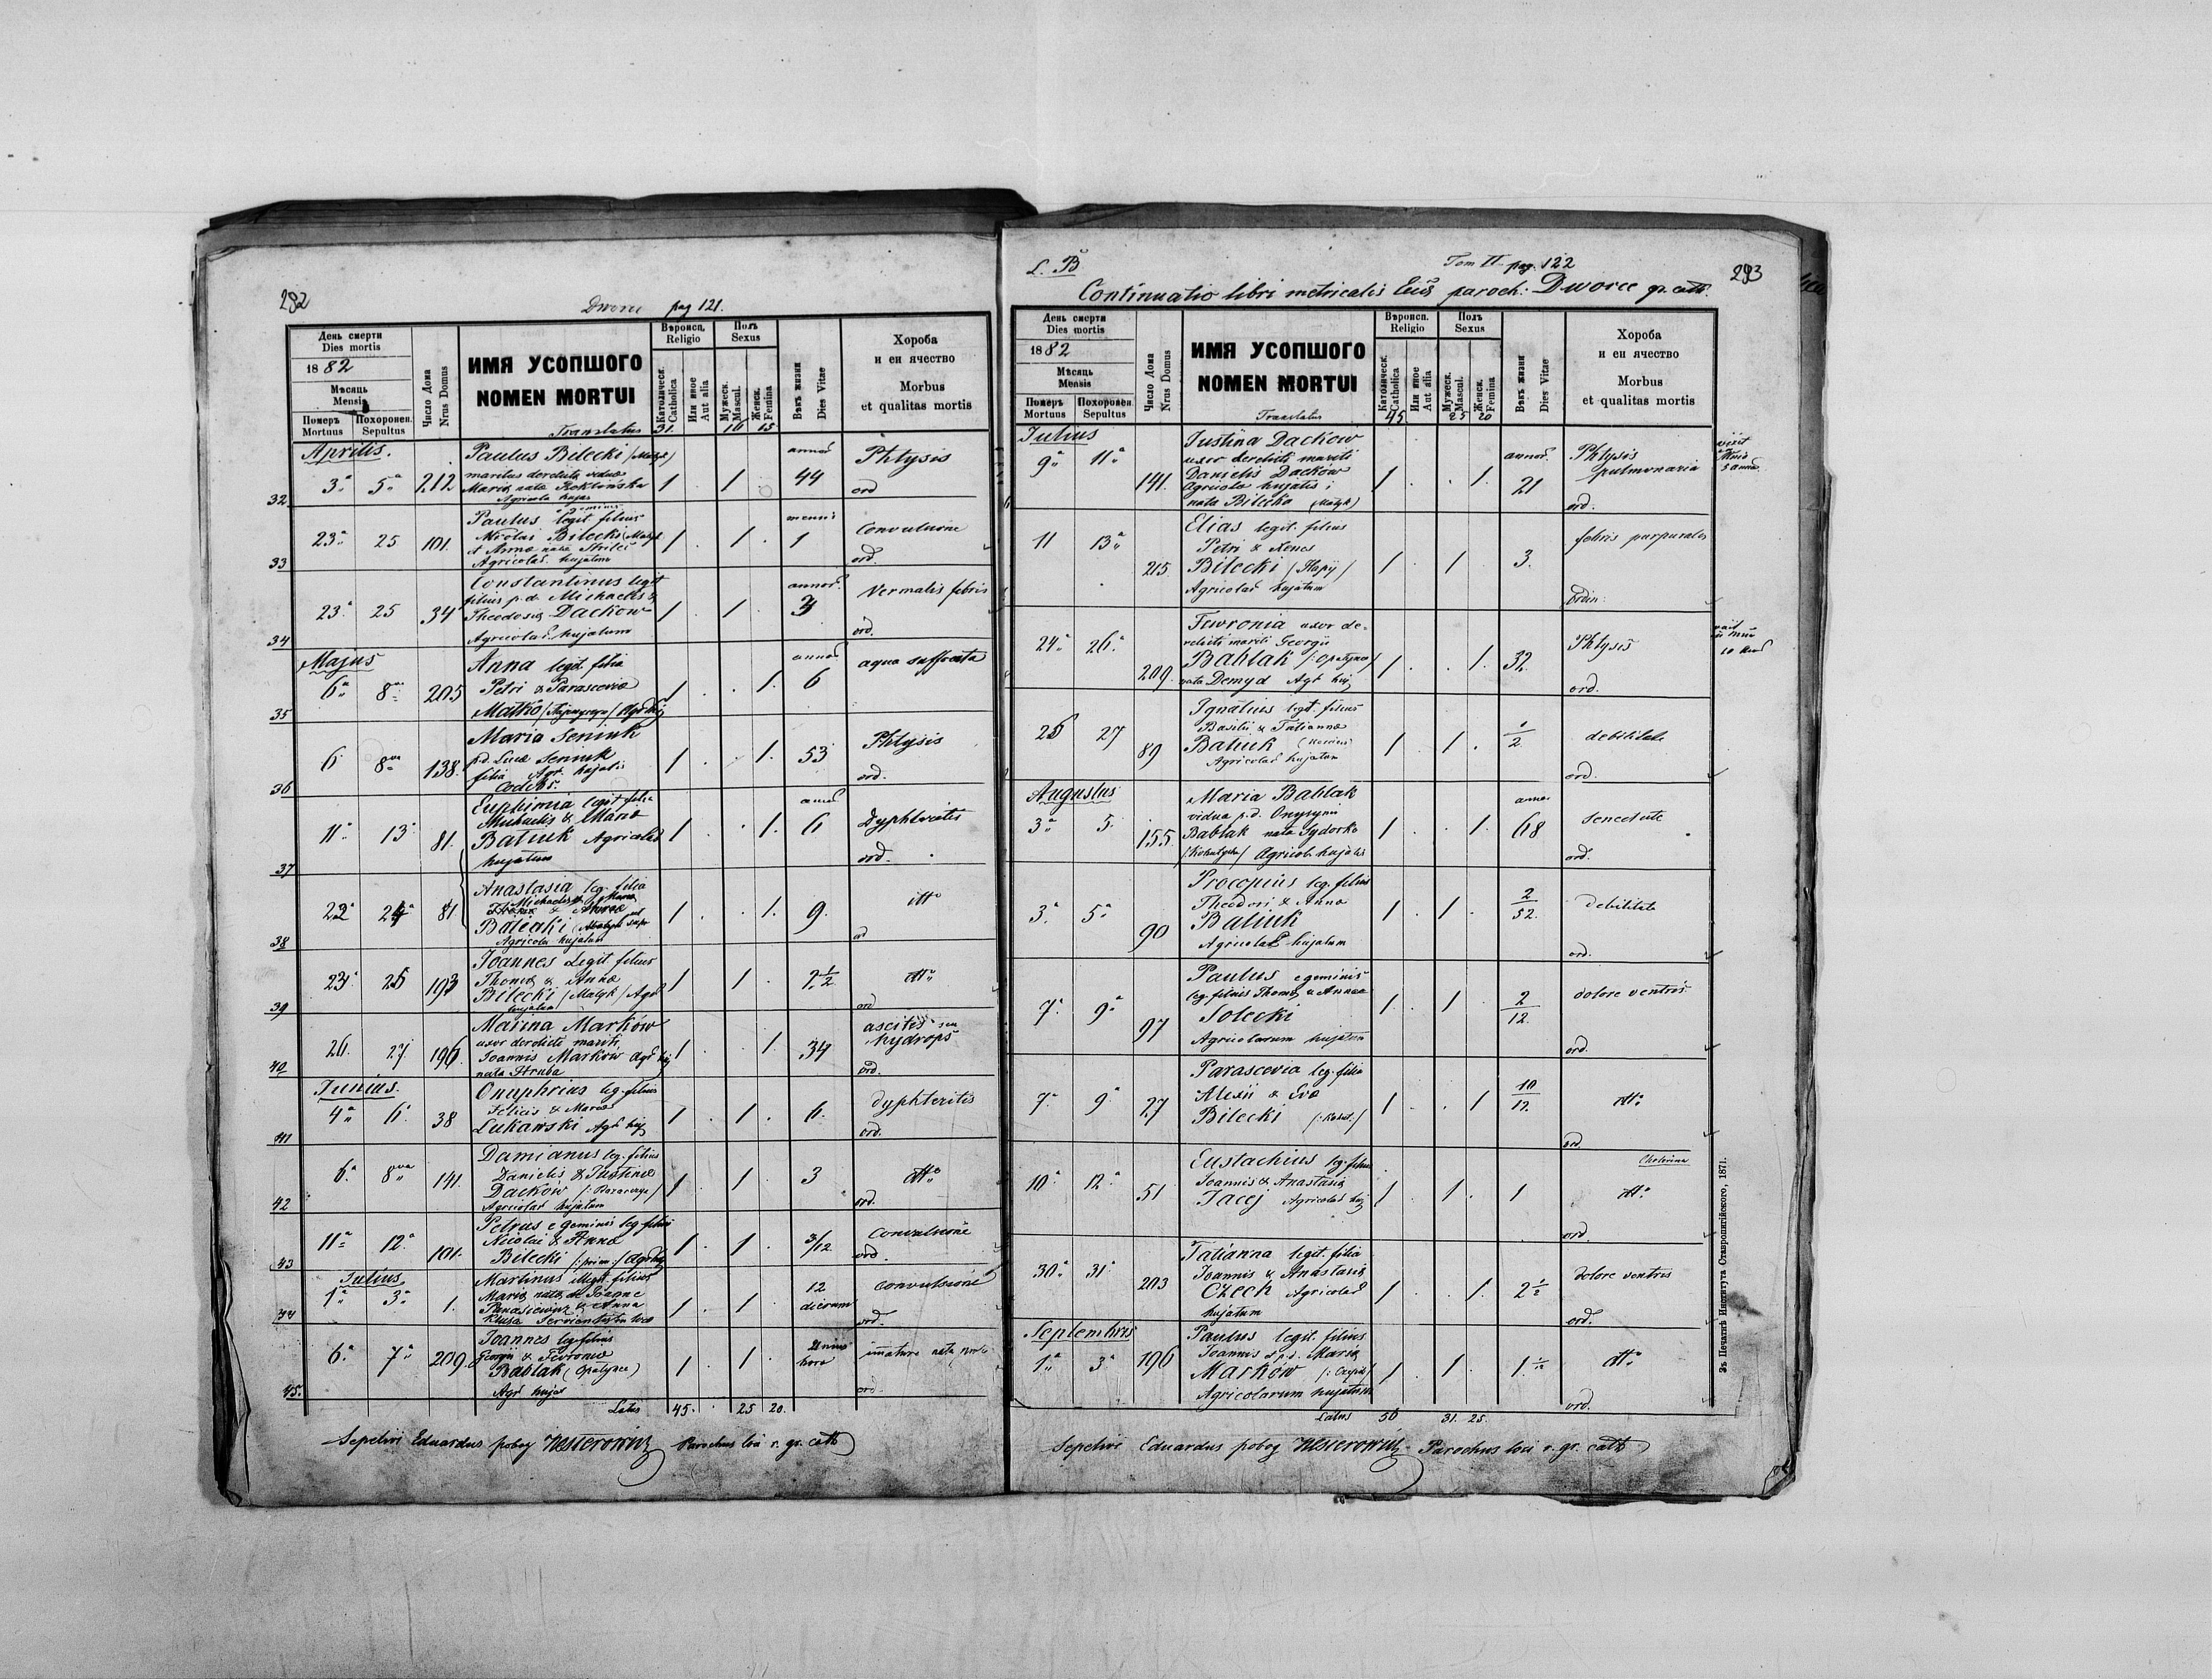 282
Dworce pag 121.
День смерти
Dies mortis
1882
Мѣсяць
Mensis
Померъ
Mortuus
Похоронен.
Sepultus
Число Дома
Nrus Domus
ИМЯ УСОПШОГО
NOMEN MORTUI
Translatus
Вѣроисп.
Religio
Католическ.
Catholica
31.
Или иное
Aut alia
Полъ
Sexus
Мужеск.
Mascul.
16
Женск.
Femina
15
Вѣкъ жизни
Dies Vitae
Хороба
и еи ячество
Morbus
et qualitas mortis
Aprilis.
32 3a 5a 212
Paulus Bilecki (Matyk)
maritus derelictae viduae
Maria nata
Agricola hujas
1 1 annor 44
Phtysis
ord
33 23a 25 101.
Paulus legit. filius
Nicolai Bilecki (Matyk
et Anna nata
Agricolar. hujatum
1 1 mensis 1
Convulsione
ord.
34 23a 25 34
Constantinus legit
filius p.d. Michaelis &
Theodosia Dackow
Agricolar. hujatum
1 1 annor. 3
Vermalis febris
ord.
Majus
35 6a 8va 205
Anna legit filia
Petri & Parascevia
Matko
1 1. annor 6
aqua suffocata
36 6 8va 138.
Maria Seniuk
p.d. Luca Seniuk
filia Agr. hujatis
1 1. 53
Phtysis
ord.
37 11a 13a 81.
Euphimia legit filia
Michaelis & Maria
Batiuk Agricolar
hujatum
1 1. annor 6
Dyphteritis
ord.
38 22a 24a 81
Anastasia leg. filia
Michaelis & Maria
Agricola hujatum
1 1. 9.
39 23a 25 193
Joannes Legit filius
Thoma & Anna
Bilecki (Matyk) Agr
hujatum
1 1 2 1/2
dtto
ord
40 26. 27 196.
Marina Markow
uxor derelicti mariti
Joannis Markow Agr huj
nata Hruba
1 1 34
ascitis seu
hydrops
ord.
Junius.
41 4a 6 38
Onuphrius leg. filius
Felicis & Maria
Lukawski Agr huj
1 1 6.
dyphteritis
ord.
42 6a 8va 141.
Damianus leg. filius
Danielis & Justina
Dackow
Agricolar hujatum
1 1 3
dtto
ord.
43 11a 12a 101.
Petrus e geminis leg filius
Nicolai & Anna
Bilecki
1 1 3/12
Convulsione
ord.
Julius
44 1a 3a 1.
Martinus illegit. filius
Maria nata de Joanne
& Anna
1 1 12
dierum
convulsione
ord.
45. 6a 7a 209.
Joannes leg filius
Georgii & Fevronia
Bablak (Opatynec)
Agr hujas
1 1 Unius
hora
ord.
Latus 45. 25 20.
Sepelivi Eduardus pobog Nesterowicz Parochus loci r. gr. cath
L. B
Tom II pag. 122
293
Continuatio libri metricalis Eccl. paroch: Dworce gr. cath.
День смерти
Dies mortis
1882
Мѣсяць
Mensis
Померъ
Mortuus
Похоронен.
Sepultus
Число Дома
Nrus Domus
ИМЯ УСОПШОГО
NOMEN MORTUI
Translatus
Вѣроисп.
Religio
Католическ.
Catholica
45.
Или иное
Aut alia
Полъ
Sexus
Мужеск.
Mascul.
25
Женск.
Femina
20
Вѣкъ жизни
Dies Vitae
Хороба
и еи ячество
Morbus
et qualitas mortis
Julius
9a 11a 141.
Justina Dackow
uxor derelicti mariti
Danielis Dackow
Agricola hujatis;
nata Bilecka (Matyk)
1 1. annor. 21
Phtysis
pulmonaria
ord.
11 13a 215
Elias legit. filius
Petri & Xenes
Bilecki
Agricolar hujatum
1 1 3.
febris purpurales
ordin.
24a 26a 209.
Fewronia uxor de-
relicti mariti Georgii
Bablak (Opatynec)
nata Demyd Agr huj
1 1. 32.
Phtysis
ord.
25 27 89
Ignatius legt. filius
Basilii & Tatianna
Batiuk
Agricolar hujatum
1 1 1/2
debilitate
ord.
Augustus
3a 5. 155.
Maria Bablak
vidua p.d. Onysymi
Bablak nata Sydorko
Agricola hujatis
1 1 annor 68
senectute
ord.
3a 5a 90
Procopius leg. filius
Theodori & Anna
Batiuk
Agricolar hujatum
1 1 2/52.
Debilitate
ord.
7a 9a 97
Paulus e geminis
leg. filius Thoma & Anna
Solecki
Agricolarum hujatum
1 1 2/12.
dolore ventris
ord.
7a 9a 27
Parascevia leg. filia
Alexii & Eva
Bilecki
1 1 10/12.
dtto
ord.
10a 12a 51
Eustachius leg. filius
Joannis & Anastasia
Jacej Agricolar huj
1 1 1
Cholerina
dtto
ord.
30a 31a 203
Tatianna legit. filia
Joannis & Anastasia
Czech Agricolar
hujatum
1 1. 2 1/2
dolore ventris
ord.
Septembris
1a 3a 196
Paulus legit. filius
Joannis & p.d. Maria
Markow
Agricolarum hujatum
1 1
dtto
ord.
Latus 56 31. 25.
Sepelivi Eduardus pobog Nesterowicz Parochus loci r. gr. cath
Зъ Печатнѣ Института Ставропигійского, 1871.